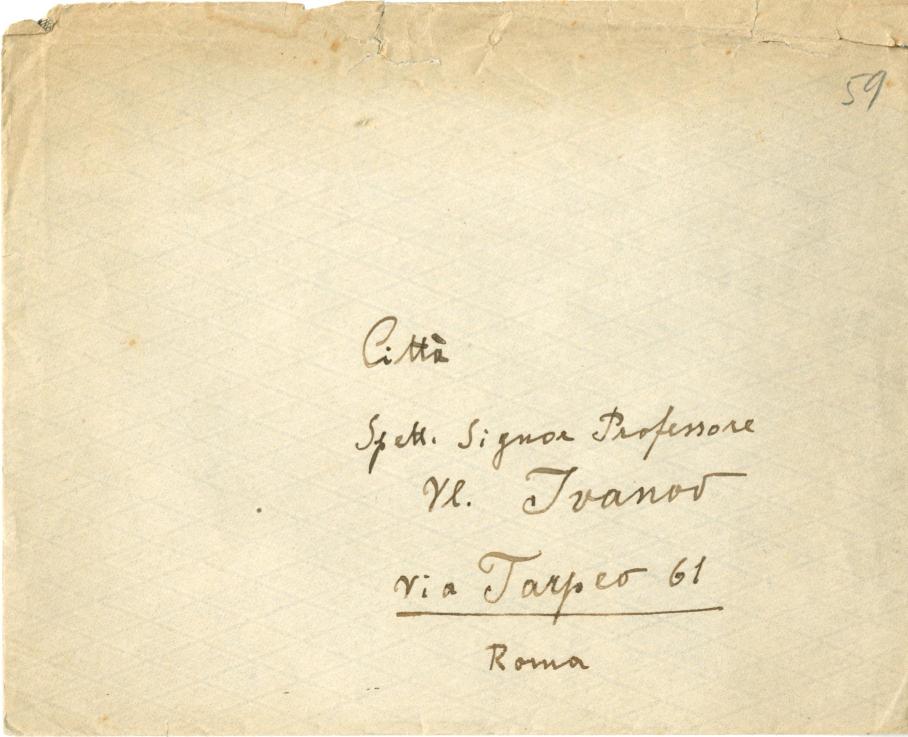 59
Città
Spett. Signor Professore
Vl. Ivanov
via Tarpeo 61
Roma